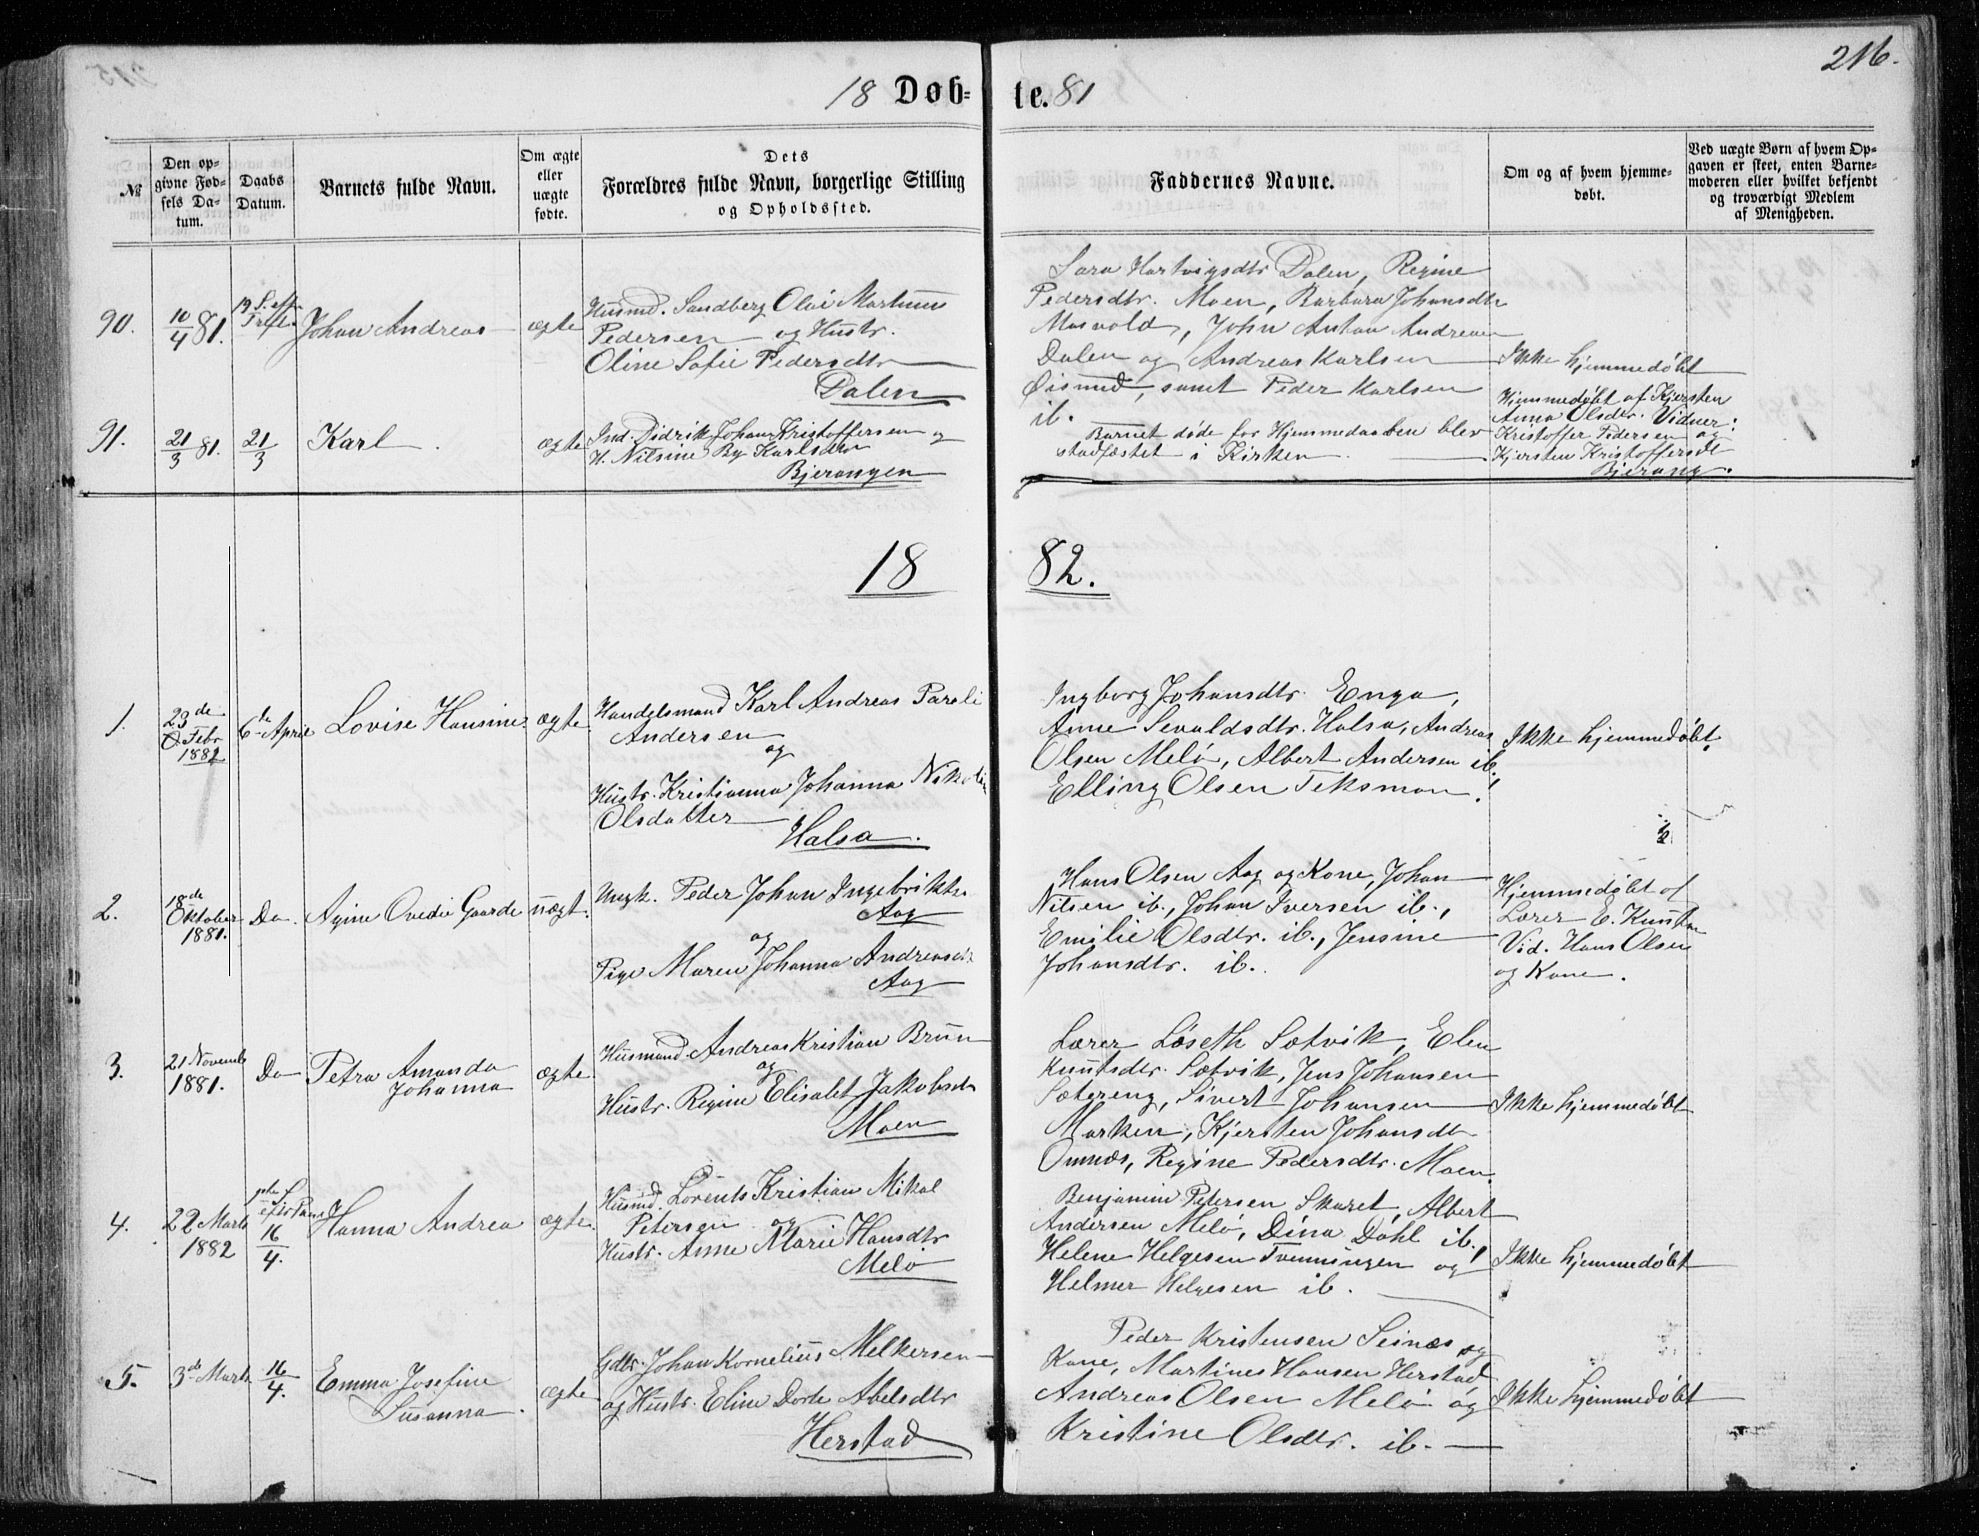 216.
18 Døb- te. 81
№
Den op-
givne Fød-
sels Da-
tum.
Daabs
Datum.
Barnets fulde Navn.
Om ægte
eller
uægte
fødte.
Dets
Forældres fulde Navn, borgerlige Stilling
og Opholdssted.
Faddernes Navne.
Om og af hvem hjemme-
døbt.
Ved uægte Børn af hvem Op-
gaven er skeet, enten Barne-
moderen eller hvilket bekjendt
og troværdigt Medlem
af Menigheden.
90.
10/4 81.
19 S. eft.
Treft.
Johan Andreas
ægte
Husmd. Sandberg Olai Martinus
Pedersen og Hustr.
Oline Sofie Pedersdtr
Dalen
Sara Hartvigsdtr Dalen, Regine
Pedersdtr. Moen, Barbara Johansdtr
Masvold, John Anton Andreasen
Dalen og Andreas Karlsen
Øisund, samt Peder Karlsen
ib.
Ikke hjemmedøbt
91.
21/3 81.
21/3
Karl
ægte
Ind. Didrik Johan Kristoffersen og
H. Nilsine By Karlsdtr
Bjerangen
Barnet døde før Hjemmedaaben blev
stadfæstet i Kirken.
Hjemmedøbt af Kjersten
Anna Olsdtr. Vidner:
Kristoffer Pedersen og
Kjersten Kristoffersdt
Bjerang.
18 82.
1.
23de
Febr
1882
6te April
Lovise Hansine
ægte
Handelsmand Karl Andreas Pareli
Andersen
og
Hustr. Kristianna Johanna Nikoline
Olsdatter
Halsa.
Ingborg Johansdtr. Enga,
Anne Sevaldsdtr. Halsa, Andreas
Olsen Melø, Albert Andersen ib.,
Elling Olsen Teksmon.
Ikke hjemmedøbt.
2.
18de
Oktober
1881.
Do
Agine Ovedie Gaarde
uægt.
Ungk. Peder Johan Ingebrikts.
Aag
og
Pige Maren Johanna Andreasdt
Aag
Hans Olsen Aag og Kone, Johan
Nilsen ib., Johan Iversen ib.,
Emilie Olsdtr. ib., Jensine
Johansdtr. ib.
Hjemmedøbt af
Lærer E. Knutsen
Vid. Hans Olsen
og Kone.
3.
21 Novemb
1881.
Do
Petra Amanda
Johanna
ægte
Husmand Andreas Kristian Brun
og
Hustr. Regine Elisabet Jakobsdtr
Moen
Lærer Løseth Sætvik, Elen
Knutsdtr. Sætvik, Jens Johansen
Sætereng, Sivert Johansen
Marken, Kjersten Johansdt
Omnæs, Regine Pedersdtr. Moen.
Ikke hjemmedøbt
4.
22 Marts
1882
1ste S.
efter Paas
16/4.
Hanna Andrea
ægte
Husmd. Lorents Kristian Mikal
Petersen og
Hustr. Anne Marie Hansdtr
Melø
Benjamin Petersen Skaret, Albert
Andersen Melø, Dina Dahl ib.,
Helene Helgesen Tvenningen og
Helmer Helgesen ib.
Ikke hjemmedøbt
5.
3de Marts
16/4.
Emma Josefine
Susanna.
ægte
Gdbr. Johan Kornelius Melkersen
og Hustr. Eline Dorte Abelsdtr
Herstad
Peder Kristensen Seinæs og
Kone, Martines Hansen Herstad
Andreas Olsen Melø og
Kristine Olsdtr. ib.
Ikke hjemmedøbt